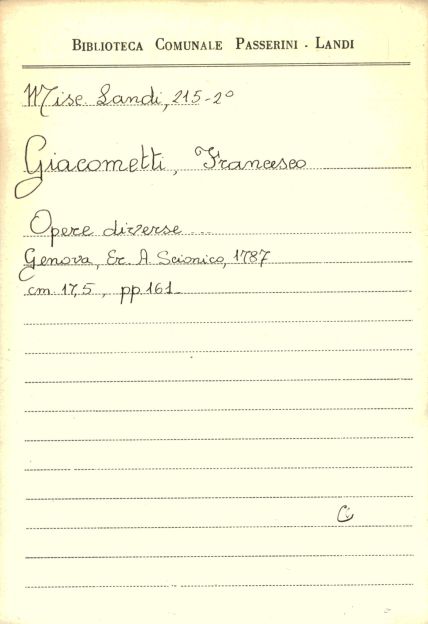 BIBLIOTECA COMUNALE PASSERINI - LANDI
Misc. Landi, 215-2º
Giacometti, Francesco
Opere diverse ...
Genova, Er. A. Scionico, 1787
cm. 17,5, pp. 161